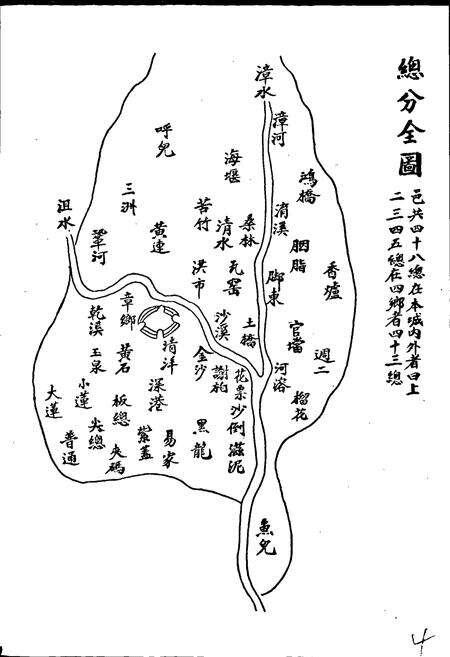 總分全圖
邑共四十八總在本城內外者曰上
二三四五總在四鄉者四十三總
漳水
漳河
鴻橋
呼兒
海堰
三洲
沮水
鞏河
黃連
苦竹
清水
桑林
淯溪
胭脂
香爐
洪市
瓦窑
腳東
章鄉
乾溪
玉泉
黃石
清洋
沙溪
土橋
官壋
週二
金沙
謝花
河溶
榴花
深港
花栗
沙倒
滋泥
大蓮
小蓮
板總
尖總
普通
夾碼
紫蓋
易家
黑龍
魚兒
4